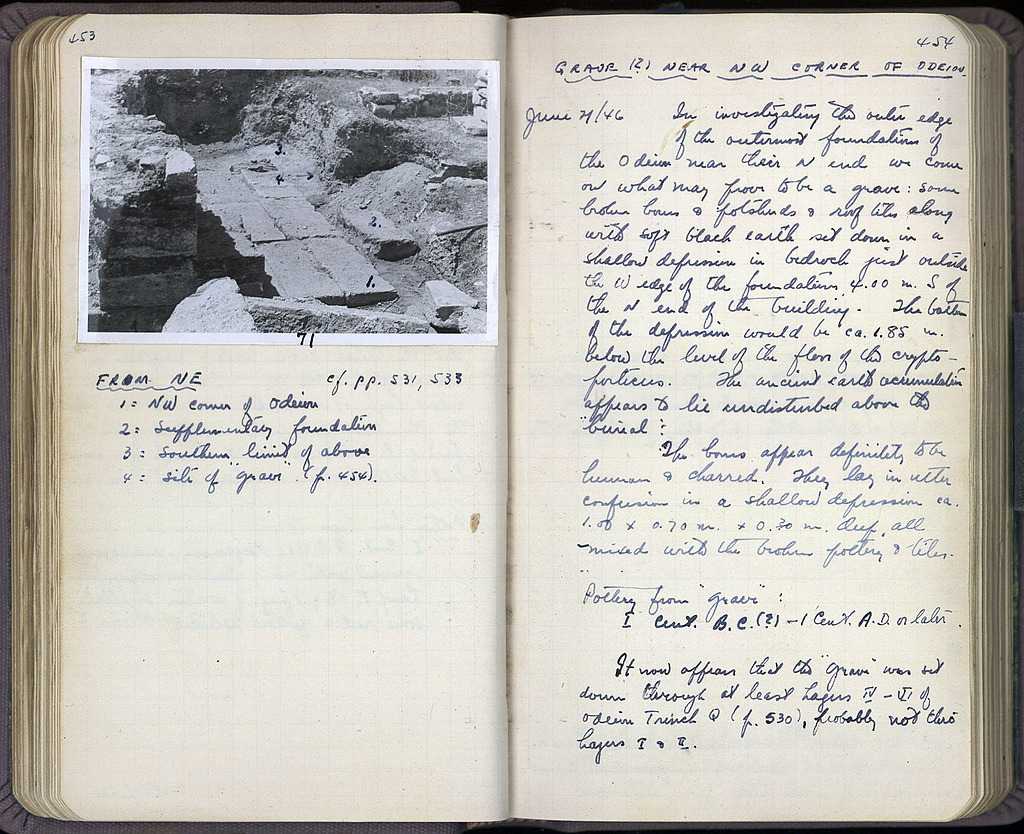 453
3.
4 →
2.
1.
71
FROM NE cf. pp. 531, 533
1 = NW corner of Odeion
2 = Supplementary foundation
3 = Southern limit of above
4 = site of "grave" (p. 454).
454
GRAVE (?) NEAR NW CORNER OF ODEION.
June 21/46 In investigating the outer edge
of the outermost foundations of
the Odeion near their N end we come
on what may prove to be a grave: some
broken bones & potsherds & roof tiles along
with soft black earth set down in a
shallow depression in bedrock just outside
the W edge of the foundations, 4.00 m. S of
the N end of the building. The bottom
of the depression would be ca. 1.85 m.
below the level of the floor of the crypto-
porticus. The ancient earth accumulation
appears to lie undisturbed above the
"burial".
The bones appear definitely to be
human & charred. They lay in utter
confusion in a shallow depression ca.
1.00 x 0.70 m. x 0.30 m. deep, all
mixed with the broken pottery & tiles.
Pottery from "grave":
I Cent. B.C. (?) – I Cent. A.D. or later.
It now appears that the "grave" was set
down through at least Layers IV – VI of
Odeion Trench Q (p. 530), probably not thro
Layers I & II.